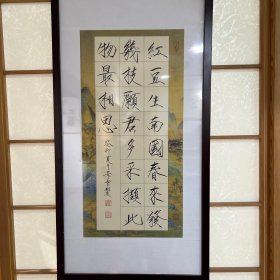 紅豆生南國春來發
幾枝願君多采擷此
物最相思
癸卯夏